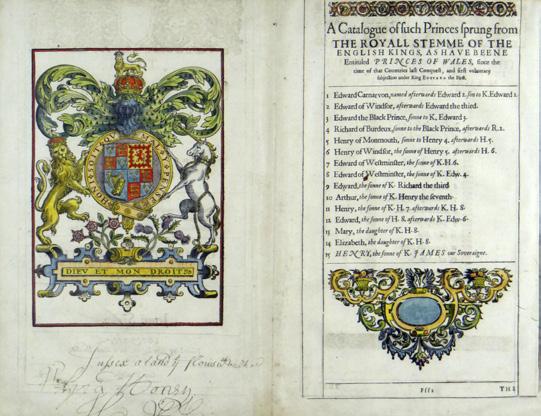 HONI SOIT QVI MAL Y PENSE
DIEV ET MON DROIT
Sussex a land
Honey
A Catalogue of such Princes sprung from
THE ROYALL STEMME OF THE
ENGLISH KINGS, AS HAVE BEENE
Entituled PRINCES OF WALES, since the
time of that Countries last Conquest, and first voluntary
subjection under King EDWARD the first.
1 Edward Carnarvon, named afterwards Edward 2. son to K. Edward 1.
2 Edward of Windsor, afterwards Edward the third.
3 Edward the Black Prince, sonne to K. Edward 3.
4 Richard of Burdeux, sonne to the Black Prince, afterwards R. 2.
5 Henry of Monmouth, sonne to Henry 4. afterwards H. 5.
6 Henry of Windsor, the sonne of Henry 5. afterwards H. 6.
7 Edward of Westminster, the sonne of K. H. 6.
8 Edward of Westminster, the sonne of K. Edw. 4.
9 Edward, the sonne of K. Richard the third
10 Arthur, the sonne of K. Henry the seventh.
11 Henry, the sonne of K. H. 7. afterwards K. H. 8.
12 Edward, the sonne of H. 8. afterwards K. Edw. 6.
13 Mary, the daughter of K. H. 8.
14 Elizabeth, the daughter of K. H. 8.
15 HENRY, the sonne of K. JAMES our Soveraigne.
THE